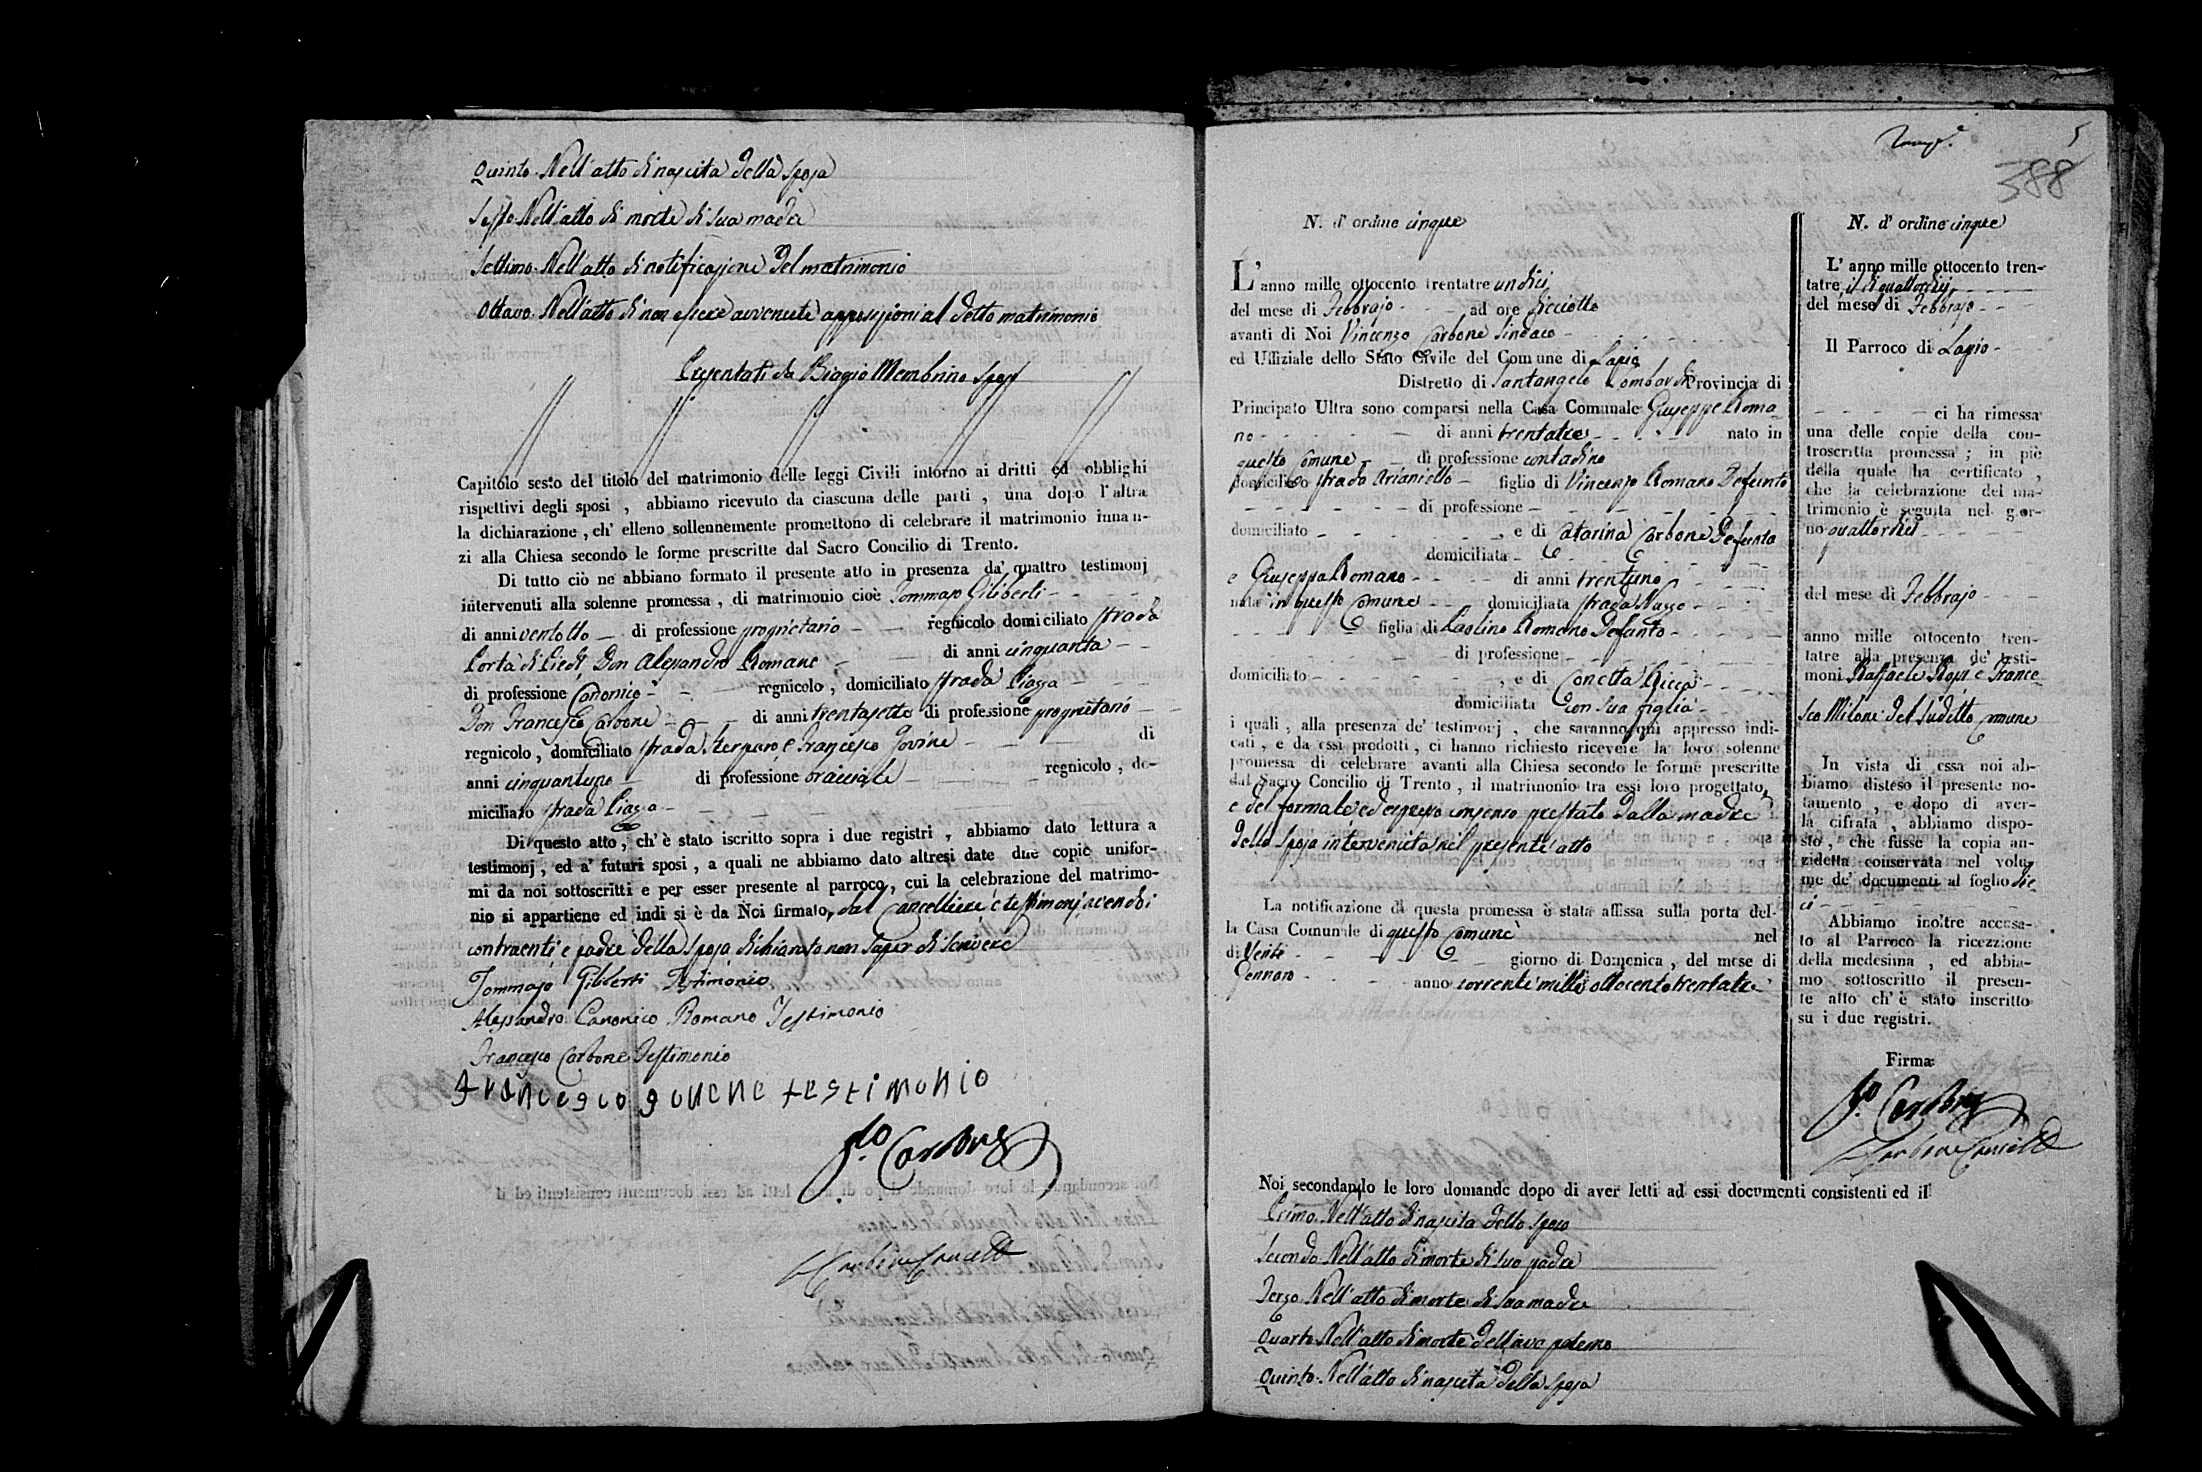 Quinto. Nell'atto di nascita della sposa
Sesto. Nell'atto di morte di sua madre
Settimo. Nell'atto di notificazione del matrimonio
Ottavo. Nell'atto di non essere avvenute opposizioni al detto matrimonio
Presentati da Biagio Membrino sposo
Capitolo sesto del titolo del matrimonio delle leggi Civili intorno ai dritti ed obblighi
rispettivi degli sposi, abbiamo ricevuto da ciascuna delle parti, una dopo l'altra
la dichiarazione, ch' elleno sollennemente promettono di celebrare il matrimonio innan-
zi alla Chiesa secondo le forme prescritte dal Sacro Concilio di Trento.
Di tutto ciò ne abbiano formato il presente atto in presenza da' quattro testimonj
intervenuti alla solenne promessa, di matrimonio cioè Tommaso Giliberti
di anni ventotto di professione proprietario regnicolo domiciliato strada
Porta di Piedi, Don Alesandro Romano di anni cinquanta
di professione Canonico regnicolo, domiciliato strada Piazza
Don Francesco Carbone di anni trentasette di professione proprietario
regnicolo, domiciliato strada Sterparo, e Francesco Jovine di
anni cinquantuno di professione bracciale regnicolo, do-
miciliato strada Piazza
Di questo atto, ch'è stato iscritto sopra i due registri, abbiamo dato lettura a
testimonj, ed a' futuri sposi, a quali ne abbiamo dato altresì date due copie unifor-
mi da noi sottoscritti e per esser presente al parroco, cui la celebrazione del matrimo-
nio si appartiene ed indi si è da Noi firmato, dal Cancelliere, e testimonj avendo i
contraenti e padre della sposa dichiarato non saper di scrivere
Tommaso Giliberti Testimonio
Alessandro Canonico Romano Testimonio
Francesco Carbone Testimonio
Francesco Jovene testimonio
Carbone
Carbone Cancell
5
388
N. d' ordine cinque
L' anno mille ottocento trentatre undici
del mese di Febbrajo ad ore diciotto
avanti di Noi Vincenzo Carbone Sindaco
ed Uffiziale dello Stato Civile del Comune di Lapio
Distretto di Santangelo Lombardi Provincia di
Principato Ultra sono comparsi nella Casa Comunale Giuseppe Roma
no di anni trentatre nato in
questo Comune di professione contadino
domiciliato strada Arianiello figlio di Vincenzo Romano Defunto
di professione
domiciliato , e di Catarina Carbone Defunta
domiciliata
e Giuseppa Romano di anni trentuno
nata in questo Comune domiciliata strada
figlia di Paolino Romano Defunto
di professione
domiciliato , e di Concetta Ricca
domiciliata con sua figlia
i quali, alla presenza de' testimonj, che saranno qui appresso indi-
cati, e da essi prodotti, ci hanno richiesto ricevere la loro solenne
promessa di celebrare avanti alla Chiesa secondo le forme prescritte
dal Sacro Concilio di Trento, il matrimonio tra essi loro progettato,
e del formale ed espresso consenso prestato dalla madre
della sposa intervenuta nel presente atto
La notificazione di questa promessa è stata affissa sulla porta del-
la Casa Comunale di questo Comune nel
di Venti giorno di Domenica, del mese di
Gennaro anno corrente mille ottocento trentatre
Noi secondando le loro domande dopo di aver letti ad essi documenti consistenti ed il
Primo. Nell'atto di nascita dello sposo
Secondo. Nell'atto di morte di suo padre
Terzo. Nell'atto di morte di sua madre
Quarto. Nell'atto di morte dell'avo paterno
Quinto. Nell'atto di nascita della sposa
N. d' ordine cinque
L' anno mille ottocento tren-
tatre, il di quattordici
del mese di Febbrajo
Il Parroco di Lapio
ci ha rimessa
una delle copie della con-
troscritta promessa; in piè
della quale ha certificato,
che la celebrazione del ma-
trimonio è seguita nel gior-
no quattordici
del mese di Febbrajo
anno mille ottocento tren-
tatre alla presenza de' testi-
moni Raffaele e France
sco Milone del sudetto Comune
In vista di essa noi ab-
biamo disteso il presente no-
tamento, e dopo di aver-
la cifrata, abbiamo dispo-
sto, che fusse la copia an-
zidetta conservata nel volu-
me de' documenti al foglio die
ci
Abbiamo inoltre accusa-
to al Parroco la ricezzione
della medesima, ed abbia-
mo sottoscritto il presen-
te atto ch'è stato inscritto
su i due registri.
Firma
Carbone
Carbone Cancell